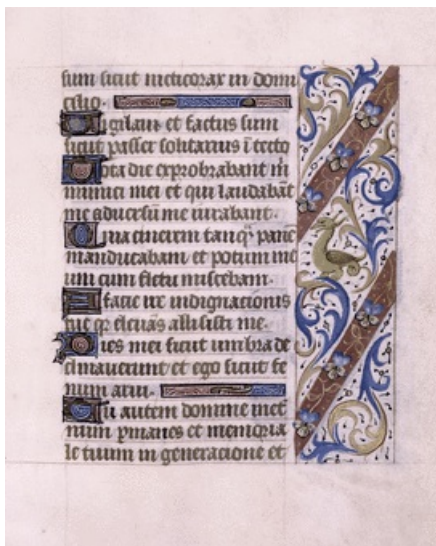 sum sicut nicticorax in domi
cilio.
Vigilavi et factus sum
sicut passer solitarius ī tecto
Tota die exprobrabant m̄
inimici mei et qui laudabāt
me adversū me iurabant.
Quia cinerem tanq̄ panē
manducabam et potum me
um cum fletu miscebam.
A facie ire indignacionis
tue qr̄ elevās allisisti me.
Dies mei sicut umbra de
clinaverunt et ego sicut fe
num arui.
Tu autem domine in et
num p̄manes et memoria
le tuum in generacione et